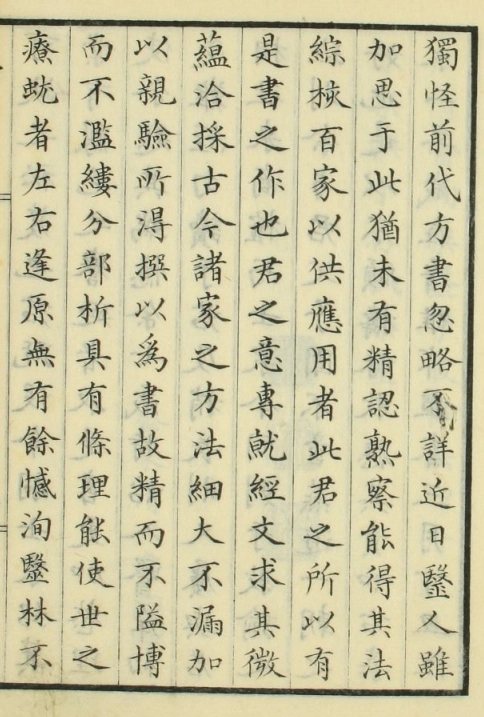 獨怪前代方書忽略不詳近日毉人雖
加思于此猶未有精認熟察能得其法
綜核百家以供應用者此君之所以有
是書之作也君之意專就經文求其微
蘊洽採古今諸家之方法細大不漏加
以親驗所淂撰以為書故精而不隘博
而不濫縷分部析具有條理能使世之
療蚘者左右逢原無有餘憾洵毉林不